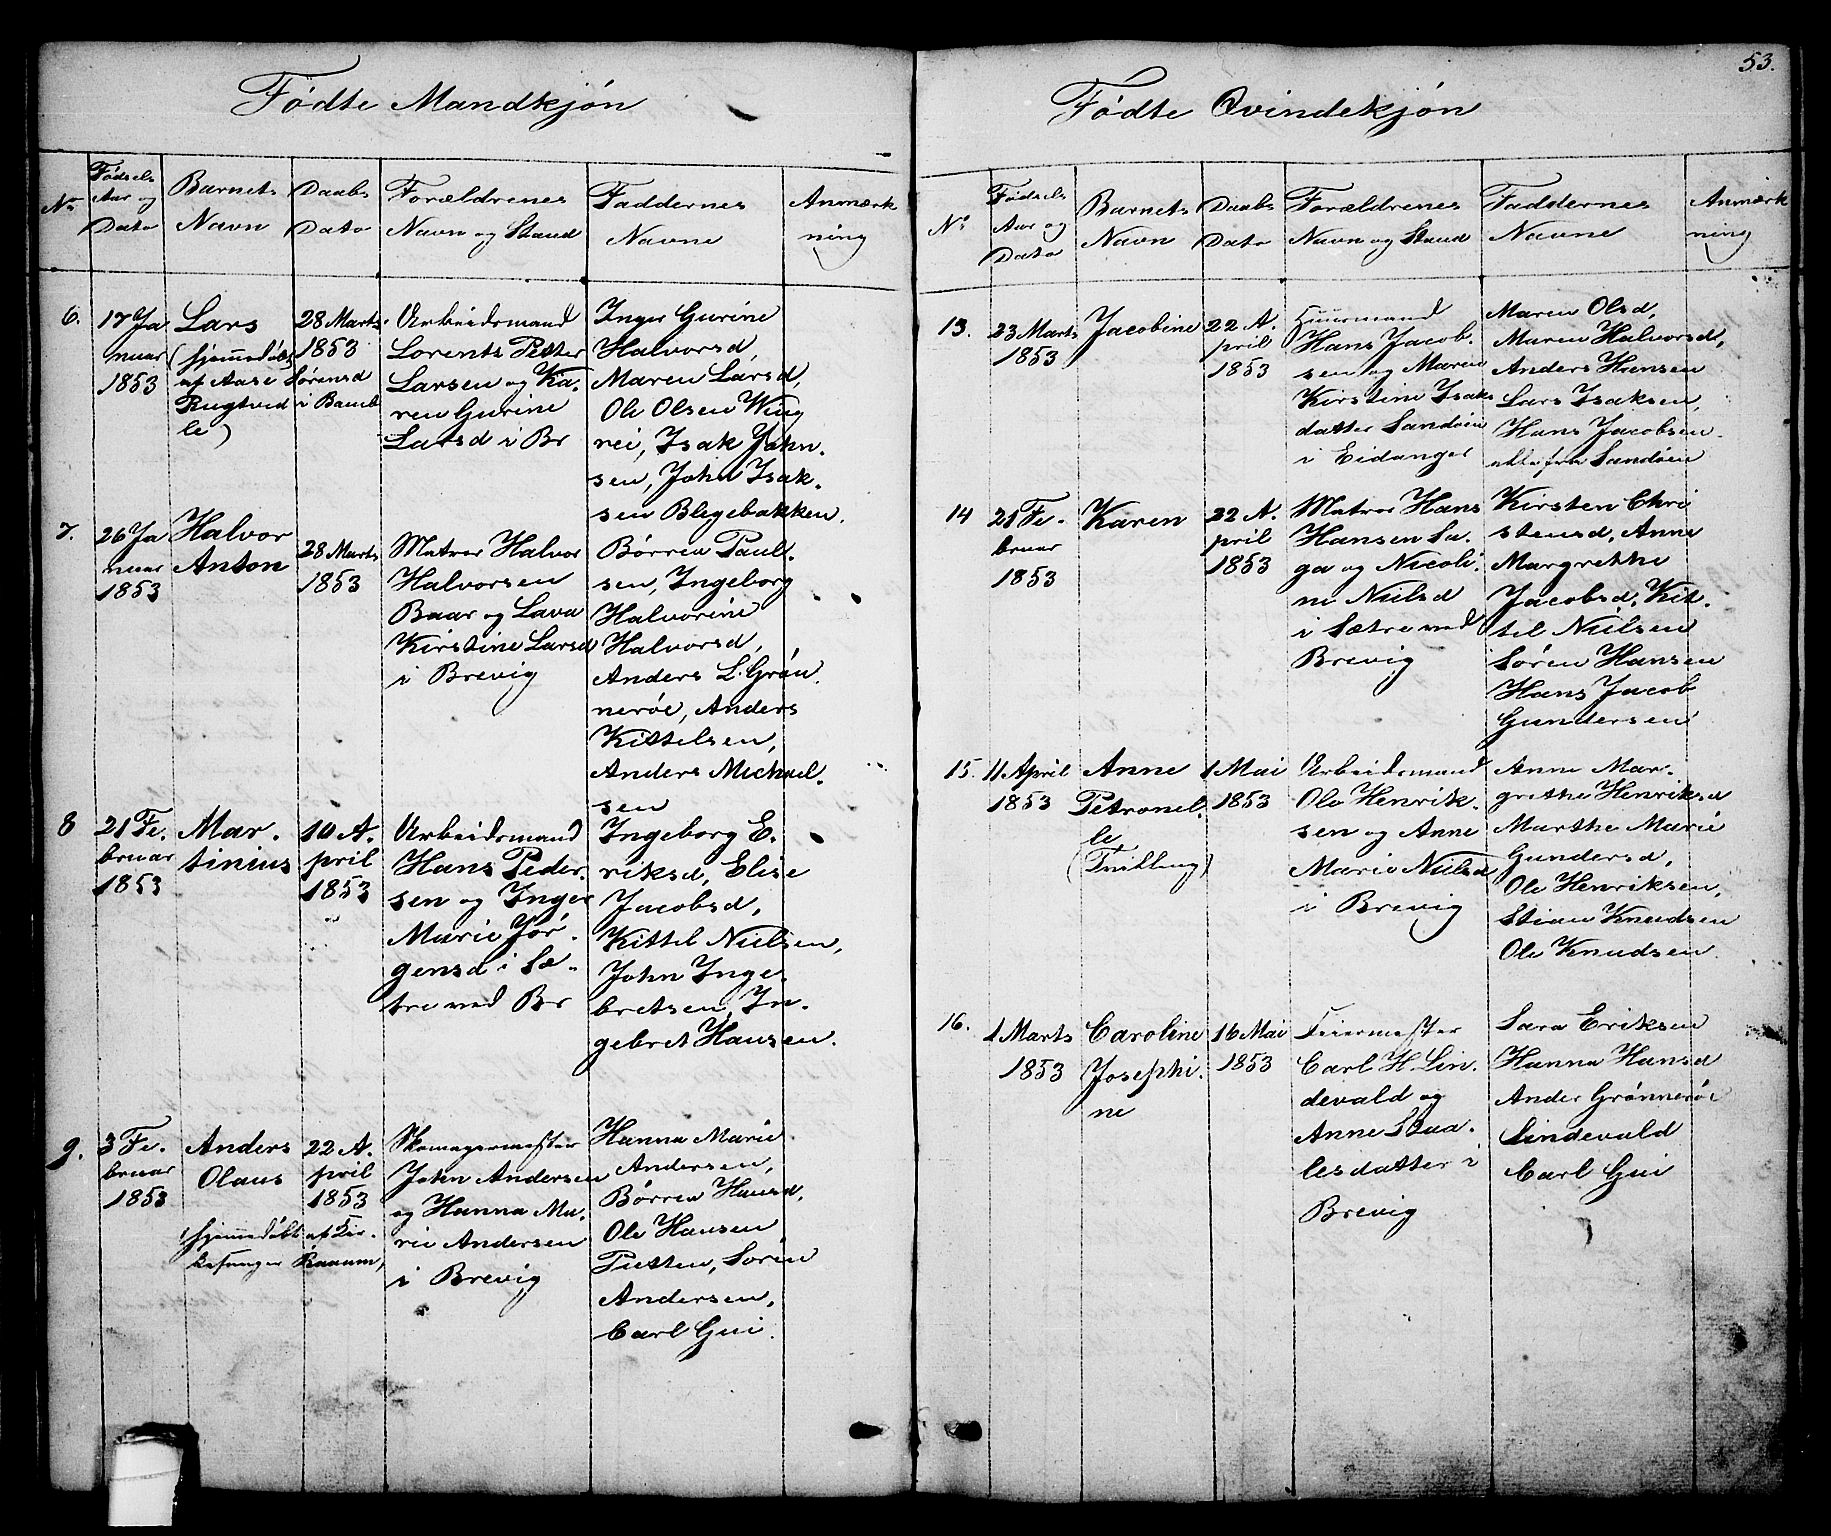 53.
Fødte Mandkjøn
No
Fødsels
Aar og
Dato
Barnets
Navn
Daabs
Dato
Forældrenes
Navn og Stand
Faddernes
Navne
Anmærk
ning
6.
17 Ja
nuar
1853
Lars
(hjemmedøbt
af Aase Sørensd
Rugtved i Bamb
le)
28 Marts
1853
Arbeidsmand
Lorents Petter
Larsen og Ka-
ren Gurine
Larsd i Br
Inger Gurine
Halvorsd,
Maren Larsd,
Ole Olsen Wing
rei, Isak John-
sen, John Isak-
sen Blegebakken.
7.
26 Ja
nuar
1853
Halvor
Anton
28 Marts
1853
Matros Halvor
Halvorsen
Baar og Lava
Kirstine Larsd
i Brevig
Børren Paul-
sen, Ingeborg
Halvorine
Halvorsd,
Anders L. Grøn
nerøe, Anders
Kittelsen,
Anders Michael-
sen
8
21 Fe-
bruar
1853
Mar-
tinius
10 A-
pril
1853
Arbeidsmand
Hans Peder-
sen og Inger
Marie Jør-
gensd i Sæ-
tre ved Br
Ingeborg E-
riksd, Elise
Jacobsd,
Kittel Nielsen,
John Inge-
bretsen, In-
gebret Hansen.
9.
3 Fe-
bruar
1853
Anders
Olaus
(hjemmedøbt af Kir-
kesanger Raaum)
22 A-
pril
1853
Skomagermester
John Andersen
og Hanna Ma-
rie Andersen
i Brevig
Hanna Marie
Andersen,
Børren Hansd,
Ole Hansen
Tutten, Søren
Andersen,
Carl Gui.
Fødte Qvindekjøn
No
Fødsels
Aar og
Dato
Barnets
Navn
Daabs
Dato
Forældrenes
Navn og Stand
Faddernes
Navne
Anmærk
ning
13.
23 Marts
1853
Jacobine
22 A-
pril
1853
Huusmand
Hans Jacob-
sen og Maren
Kirstine Isaks
datter Sandøen
i Eidanger
Maren Olsd,
Maren Halvorsd,
Anders Hansen
Lars Isaksen,
Hans Jacobsen
alle fra Sandøen
14
21 Fe-
bruar
1853
Karen
22 A-
pril
1853
Matros Hans
Hansen Sa-
ga og Nicoli-
ne Nielsd
i Sætre ved
Brevig
Kirsten Chri
stensd, Anne
Margrethe
Jacobsd, Kit-
tel Nielsen
Søren Hansen
Hans Jacob
Gundersen
15.
11 April
1853
Anne
Petronel-
le
(Tvilling)
1 Mai
1853
Arbeidsmand
Ole Henrik-
sen og Anne
Marie Nielsd
i Brevig
Anne Mar-
grethe Henriksd
Marthe Marie
Gundersd,
Ole Henriksen,
Stian Knudsen
Ole Knudsen.
16.
1 Marts
1853
Caroline
Josephi-
ne
16 Mai
1853
Feiermester
Carl H. Lin-
devald og
Anne Staa-
lesdatter i
Brevig
Sara Eriksen
Hanna Hansd
Ander Grønnerøe
Lindevald
Carl Gui